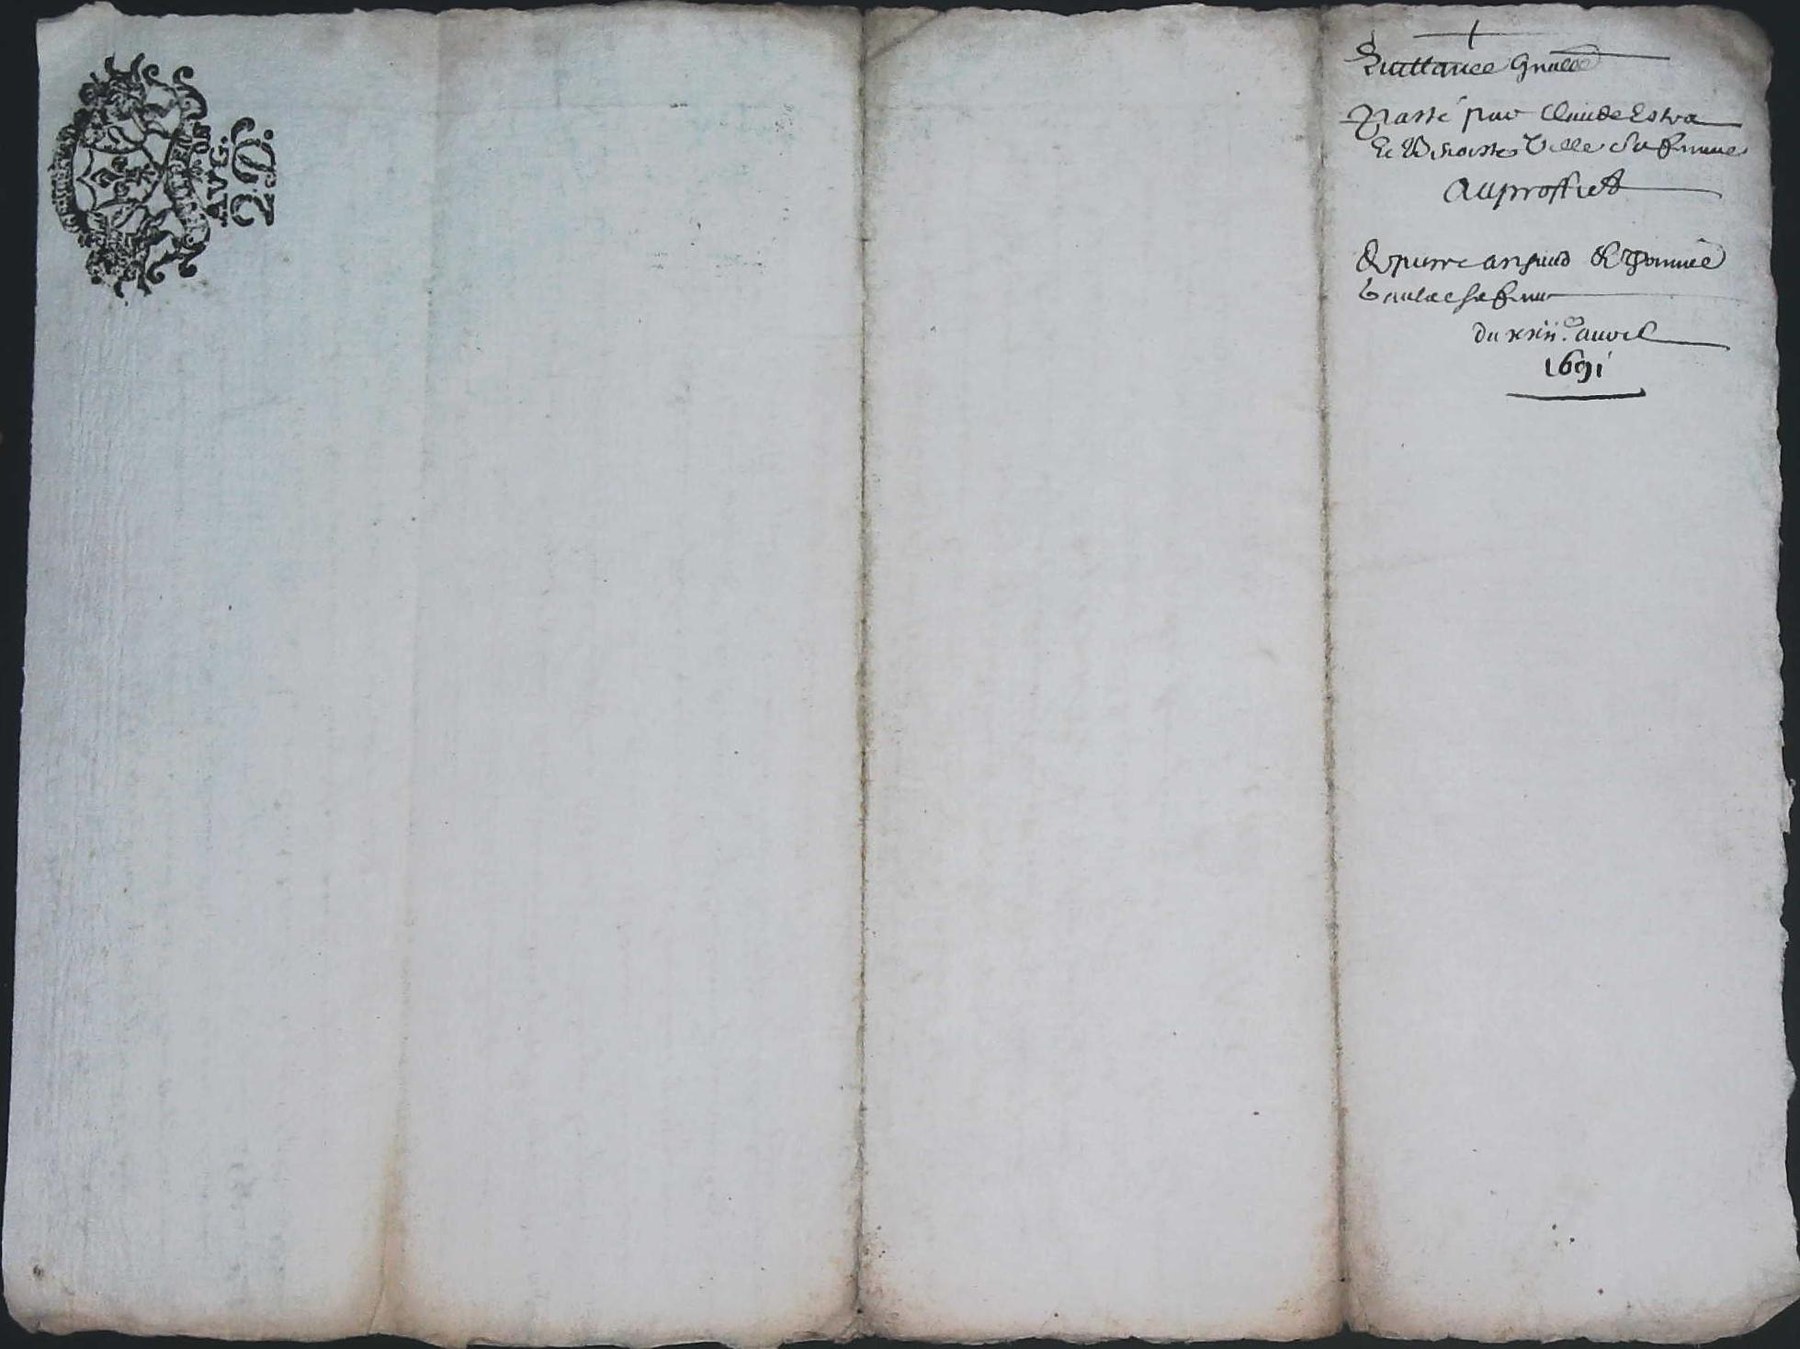 AVG.
2.D.
Quittance gnalle
passé par Claude Estra
Et Benoiste Ville sa femme
Au proffict
De pierre arnaud Et
sa fem
du xxiii.e avvril
1691